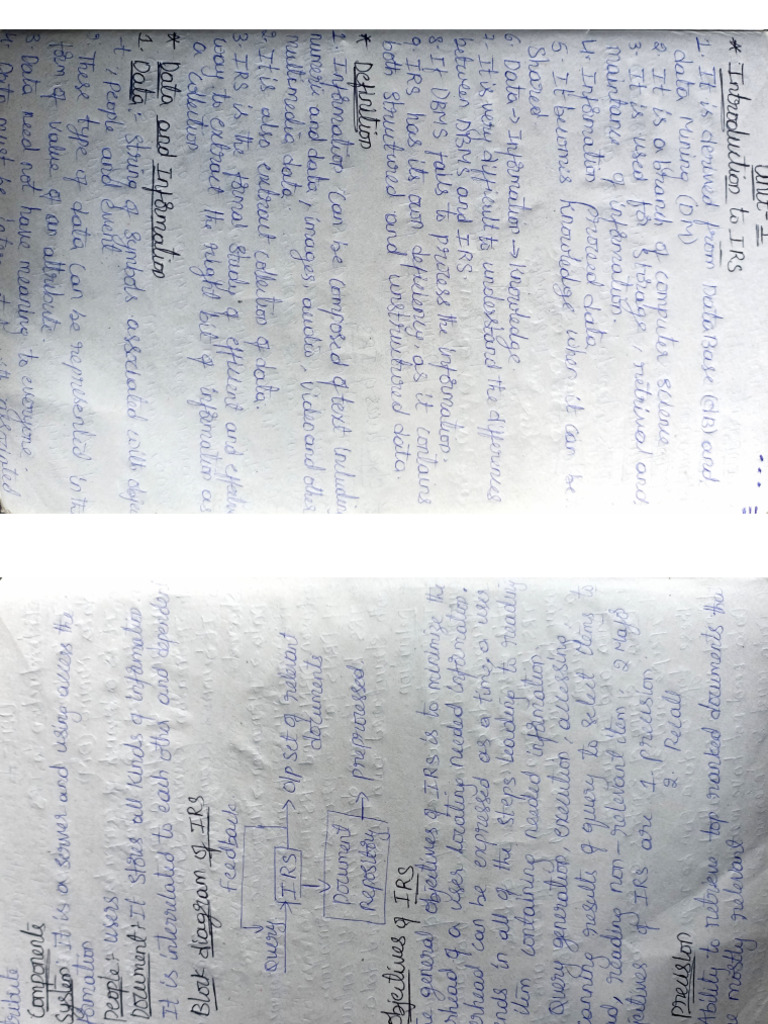 Unit-1
* Introduction to IRS
1. It is derived from DataBase (dB) and
data Mining (DM)
2. It is a branch of computer science
3. It is used for storage, retrieval and
maintance of information
4. Information processed data
5. It becomes knowledge when it can be
Shared
6. Data → Information → Knowledge
7. It is very difficult to understand the differences
between DBMS and IRS.
8. If DBMS fails to process the information
9. IRS has its own deficiency as it contains
both structured and unstructured data.
* Definition
1. Information can be composed of text includin
numeric and data, images audio, video and othe
multimedia data.
2. It is also extract collection of data.
3. IRS is the formal study of efficient and effecti
way to extract the right bit of information as
a collection
* Data and Information
1. Data: String of symbols associated with obje
, people and event
2. These type of data can be represented in the
form of value of an attribute.
3. Data need not have meaning to everyone
4. Data must be
tribute
Components
System It is a server and using access the
formation
People → users
Document → It stores all kinds of information
It is interrelated to each other and depender
Block diagram of IRS
Feedback
Query
IRS
→ O/p set of relevant
documents
Document
Repository
→ preprocessed
Objectives of IRS
he general objectives of IRS is to minimize the
erhead of a user locating needed information.
erhead can be expressed as a time a user
ends in all of the steps leading to reading
item containing needed information
Query generation, execution, accessing
canning results of query to select items to
d, reading non-relevant item. 2 Majo
jectives of IRS are 1. precision
2. Recall
precision
Ability to retrieve top ranked documents tha
e mostly relevant